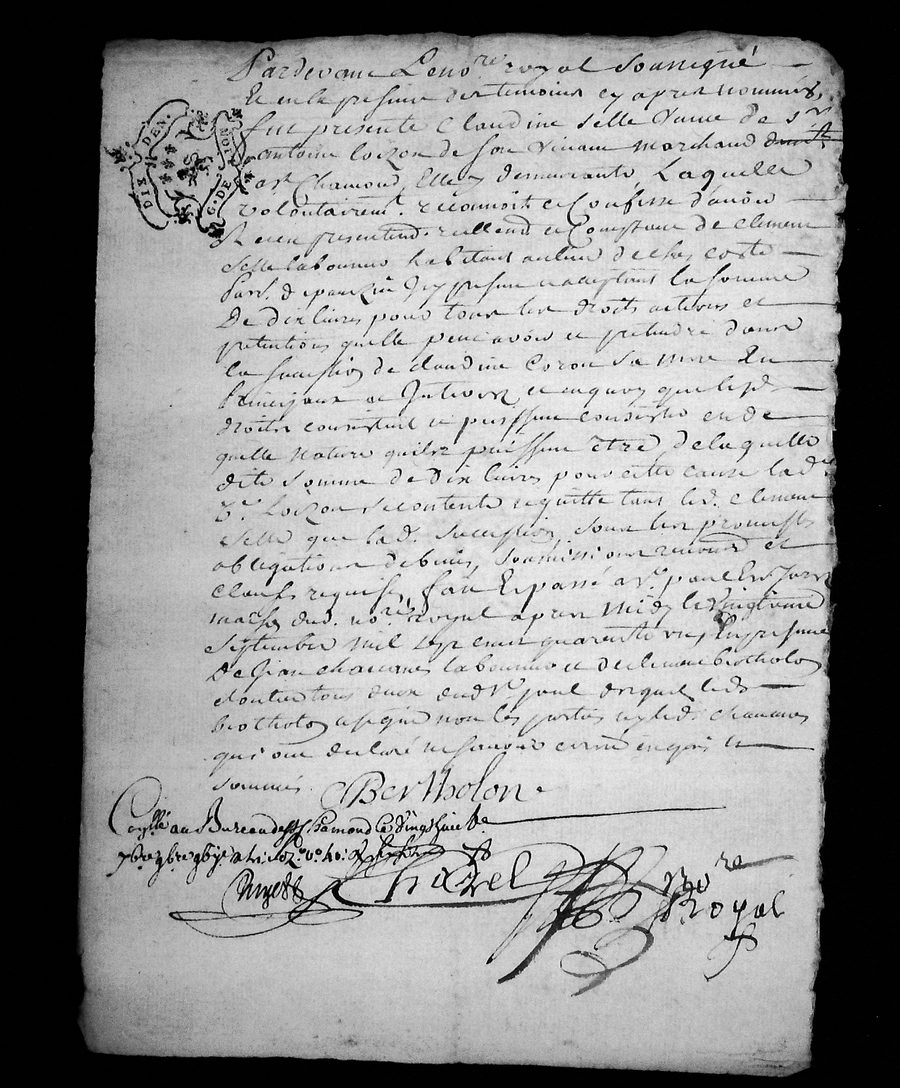 Pardevant Le no.re royal soussigné
Et en la presence des temoins cy apres nommés,
fut presente Claudine Selle veuve de s.r
antoine loizon de son vivant marchand
a st Chamond, Elle y demeurante, Laquelle
volontairem.t reconnoit et Confesse d'avoir
et Comptant de Clement
Selle laboureur habitant au lieu de chez coste
parr. de et acceptant la somme
De dix livres pour tous les droits actions et
pretentions quelle peut avoir et pretendre dans
la succession de claudine coron sa mere En
principaux et Interets, et en quoy que lesd.
droits consistent et puissent consister et de
quelle nature quils puissent être, de laquelle
dite somme de Dix livres pour cette cause lad.e
v.e Loizon se contente et quitte tant led. Clement
Selle que lad. succession, sous les promesses
obligations de biens, soumissions renond et
clauses requises, fait Et passé a s.t paul En Jarez
no.re royal apres midy le vingtieme
septembre mil sept cent quarante un, En presence
de Jean chavanne laboureur et de clement bertholon
tous deux dud. s.t paul desquels led.
bertholon a signé non les parties ny led. chavannes
qui ont declaré ne scavoir ecrire enquis et
sommés.
Bertholon
Con.llé au Bureau de St Chamond le vingt huit
7bre
Chazel no.re
Royal
DIX DEN.
G. DE LION